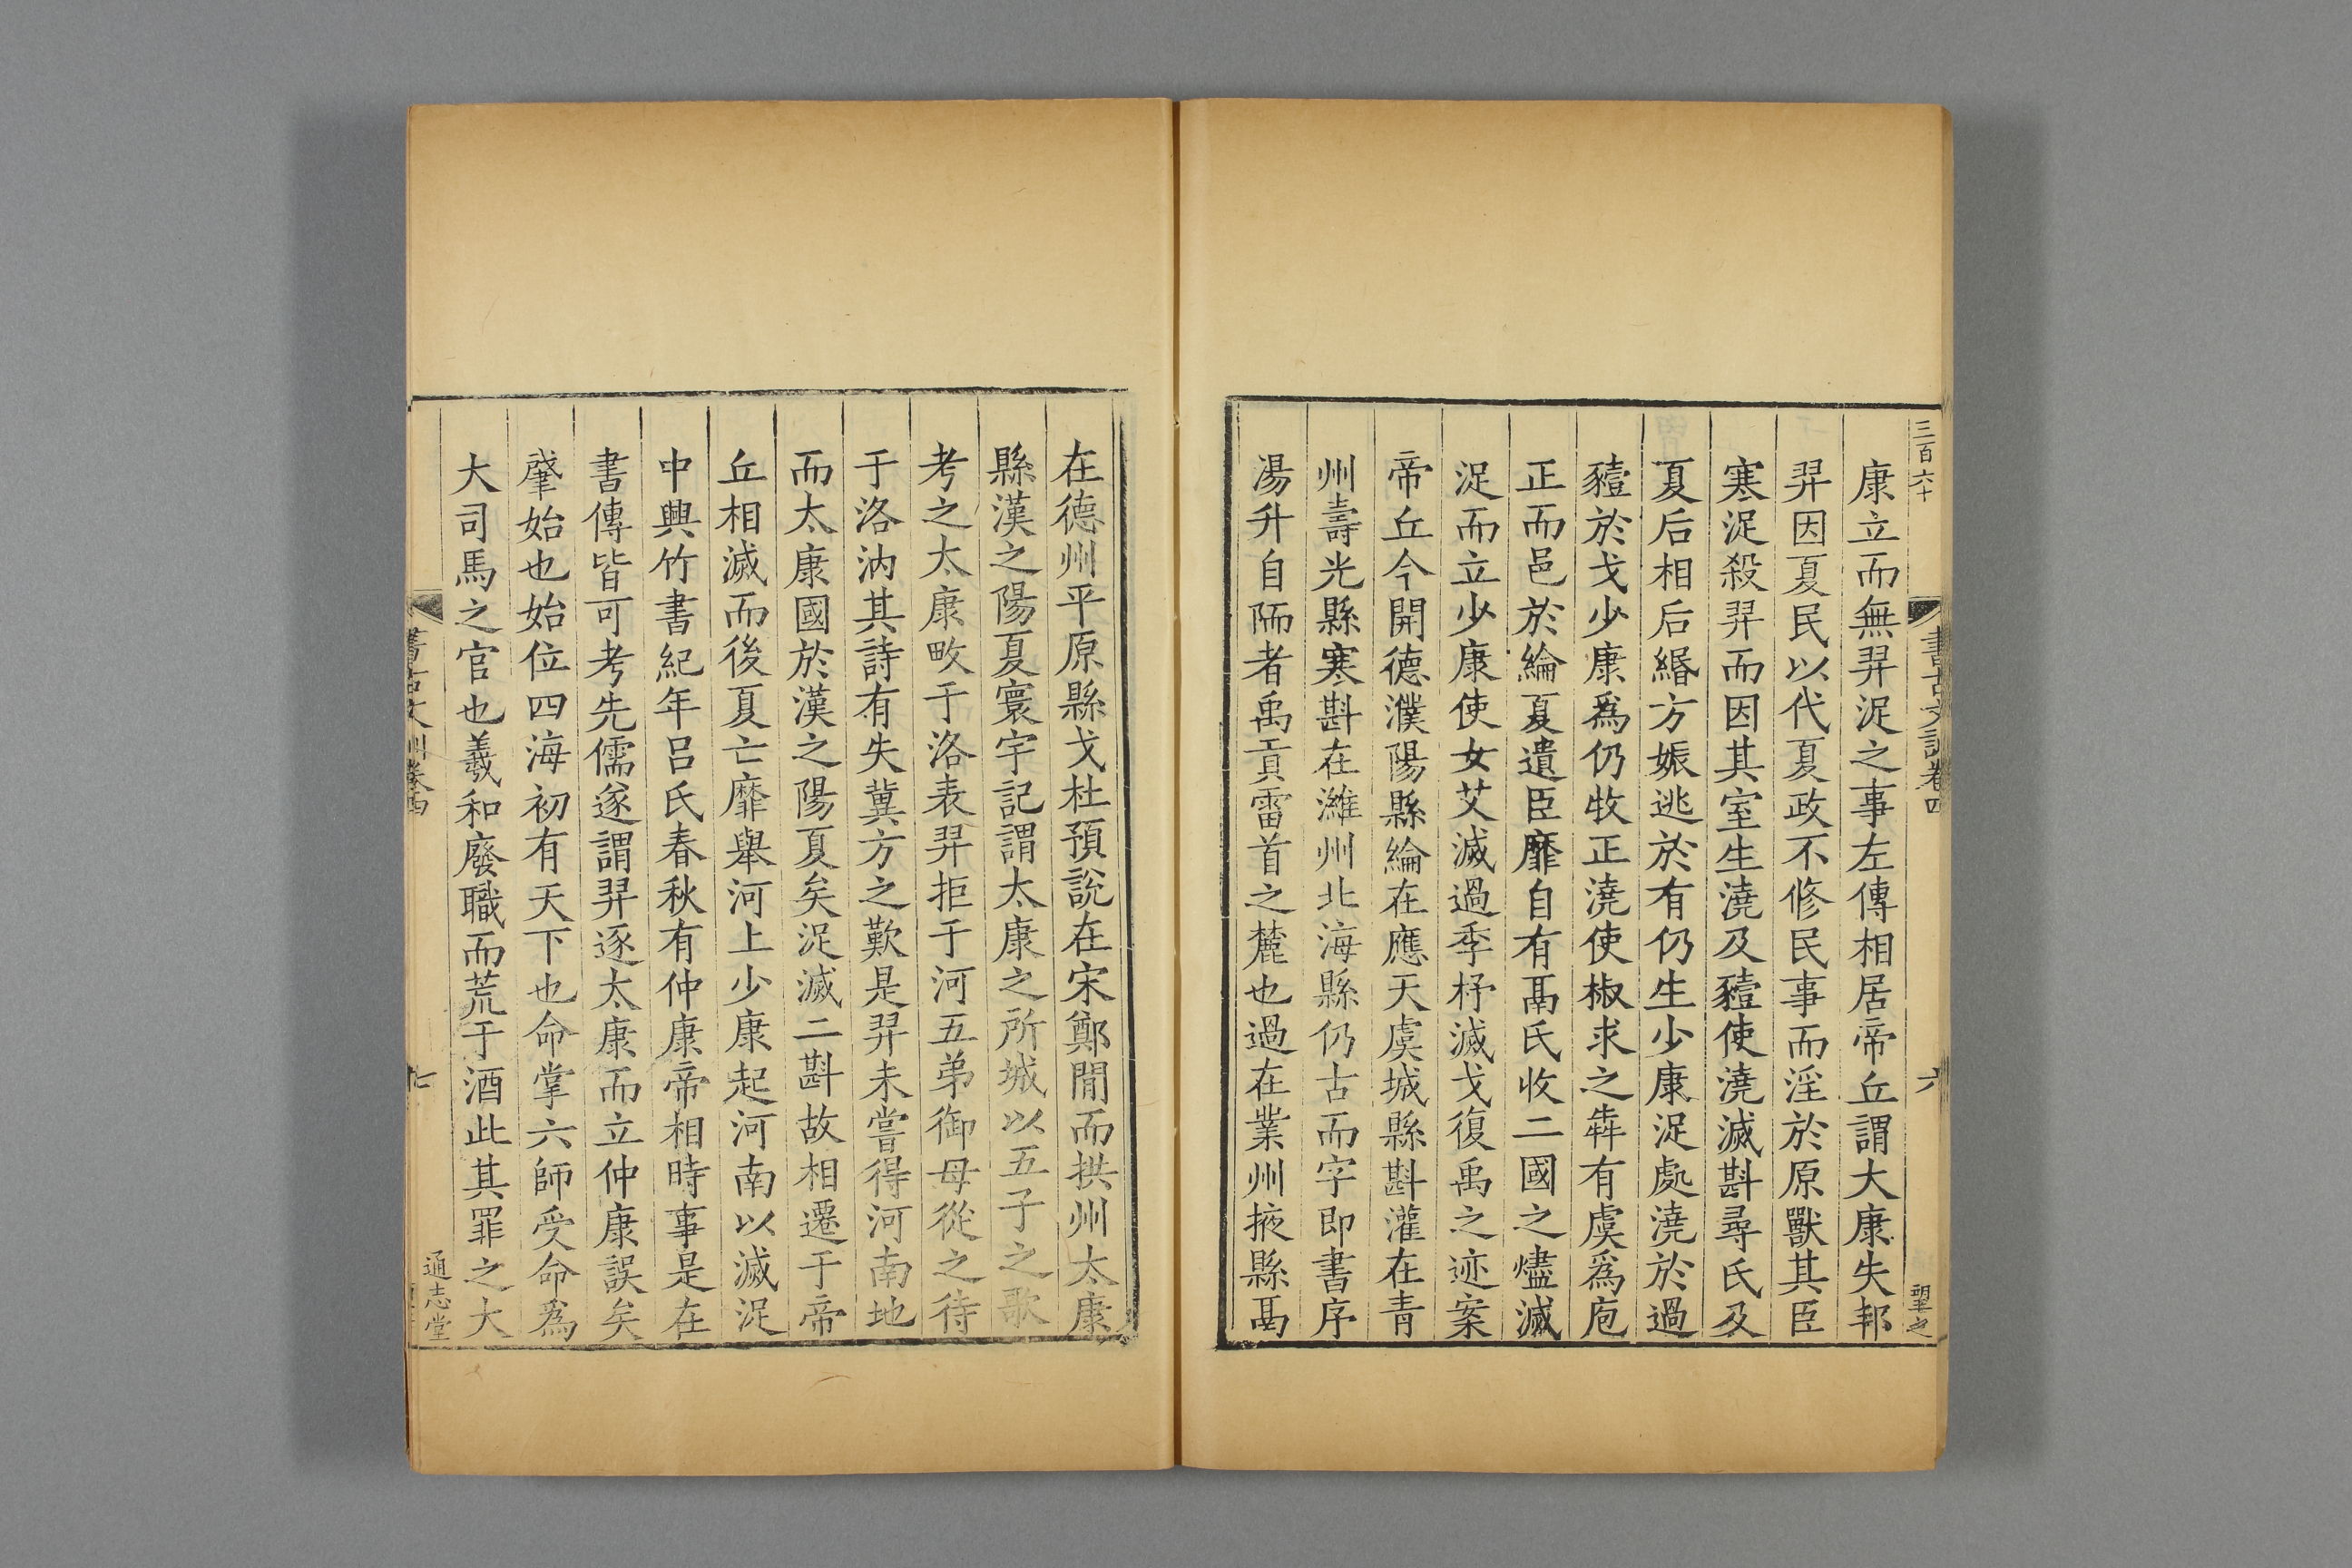 三百六十
書古文訓卷四
六
康立而無羿浞之事左傳相居帝丘謂大康失邦
羿因夏民以代夏政不修民事而淫於原獸其臣
寒浞殺羿而因其室生澆及豷使澆滅斟尋氏及
夏后相后緡方娠逃於有仍生少康浞處澆於過
豷於戈少康爲仍牧正澆使椒求之犇有虞爲庖
正而邑於綸夏遺臣靡自有鬲氏收二國之燼滅
浞而立少康使女艾滅過季杼滅戈復禹之迹案
帝丘今開德濮陽縣綸在應天虞城縣斟灌在青
州壽光縣寒斟在濰州北海縣仍古而字即書序
湯升自陑者禹貢雷首之麓也過在萊州掖縣鬲
在德州平原縣戈杜預說在宋鄭閒而拱州太康
縣漢之陽夏寰宇記謂太康之所城以五子之歌
考之太康畋于洛表羿拒于河五弟御母從之待
于洛汭其詩有失冀方之歎是羿未嘗得河南地
而太康國於漢之陽夏矣浞滅二斟故相遷于帝
丘相滅而後夏亡靡舉河上少康起河南以滅浞
中興竹書紀年呂氏春秋有仲康帝相時事是在
書傳皆可考先儒遂謂羿逐太康而立仲康誤矣
肇始也始位四海初有天下也命掌六師受命爲
大司馬之官也羲和廢職而荒于酒此其罪之大
書古文訓卷四
七
通志堂